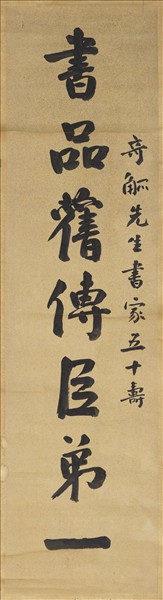 奇觚先生書家五十壽
書品舊傳臣弟一